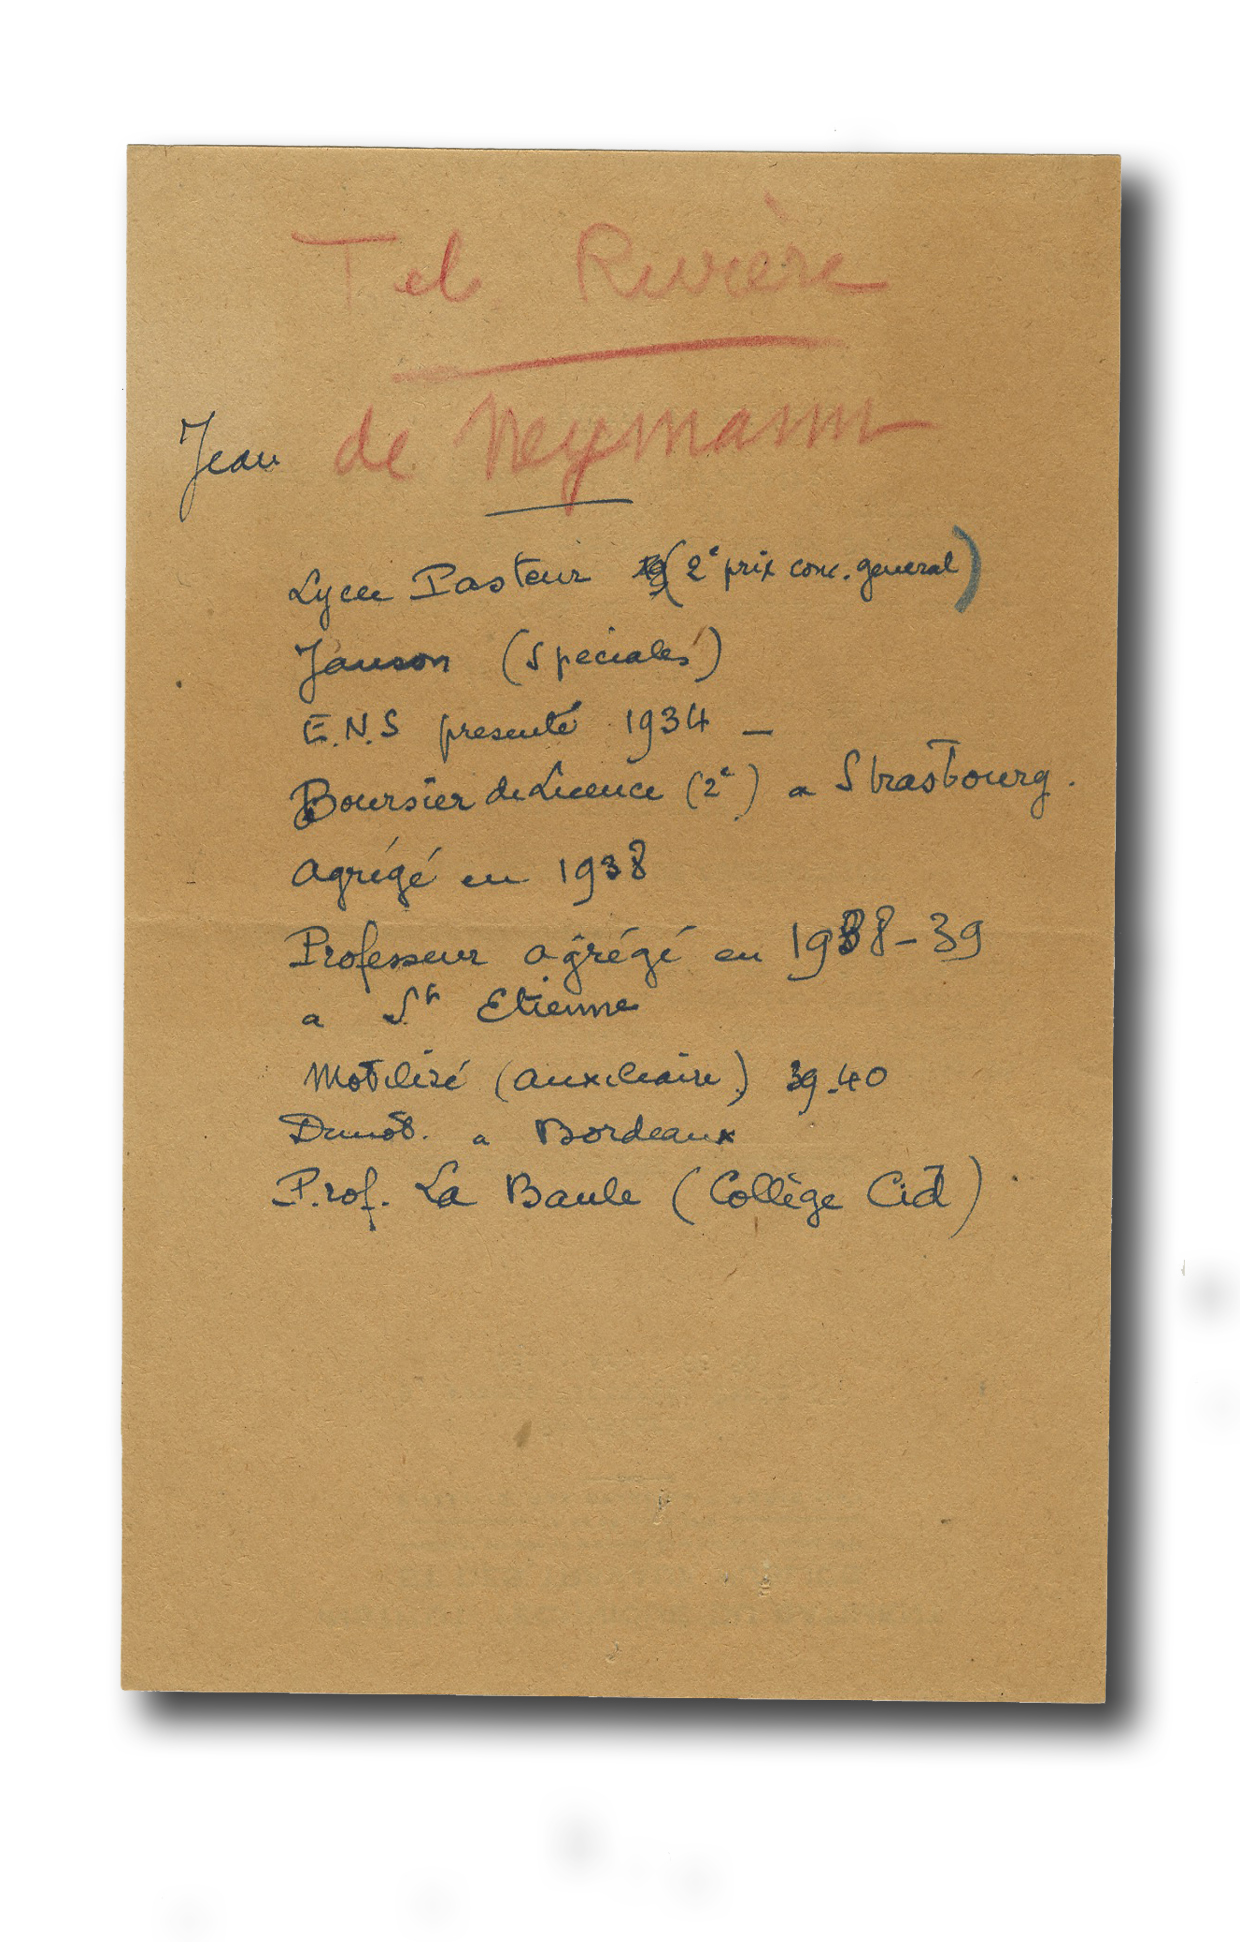 Tel Rivière
Jean de Neymann
Lycée Pasteur (2e prix conc. general)
Janson (Spéciales)
E.N.S présenté 1934 —
Boursier de Licence (2e) a Strasbourg.
Agrégé en 1938
Professeur agrégé en 1938-39
a St Etienne
Mobilisé (auxiliaire) 39-40
Démob. a Bordeaux
Prof. La Baule (Collège Cid)